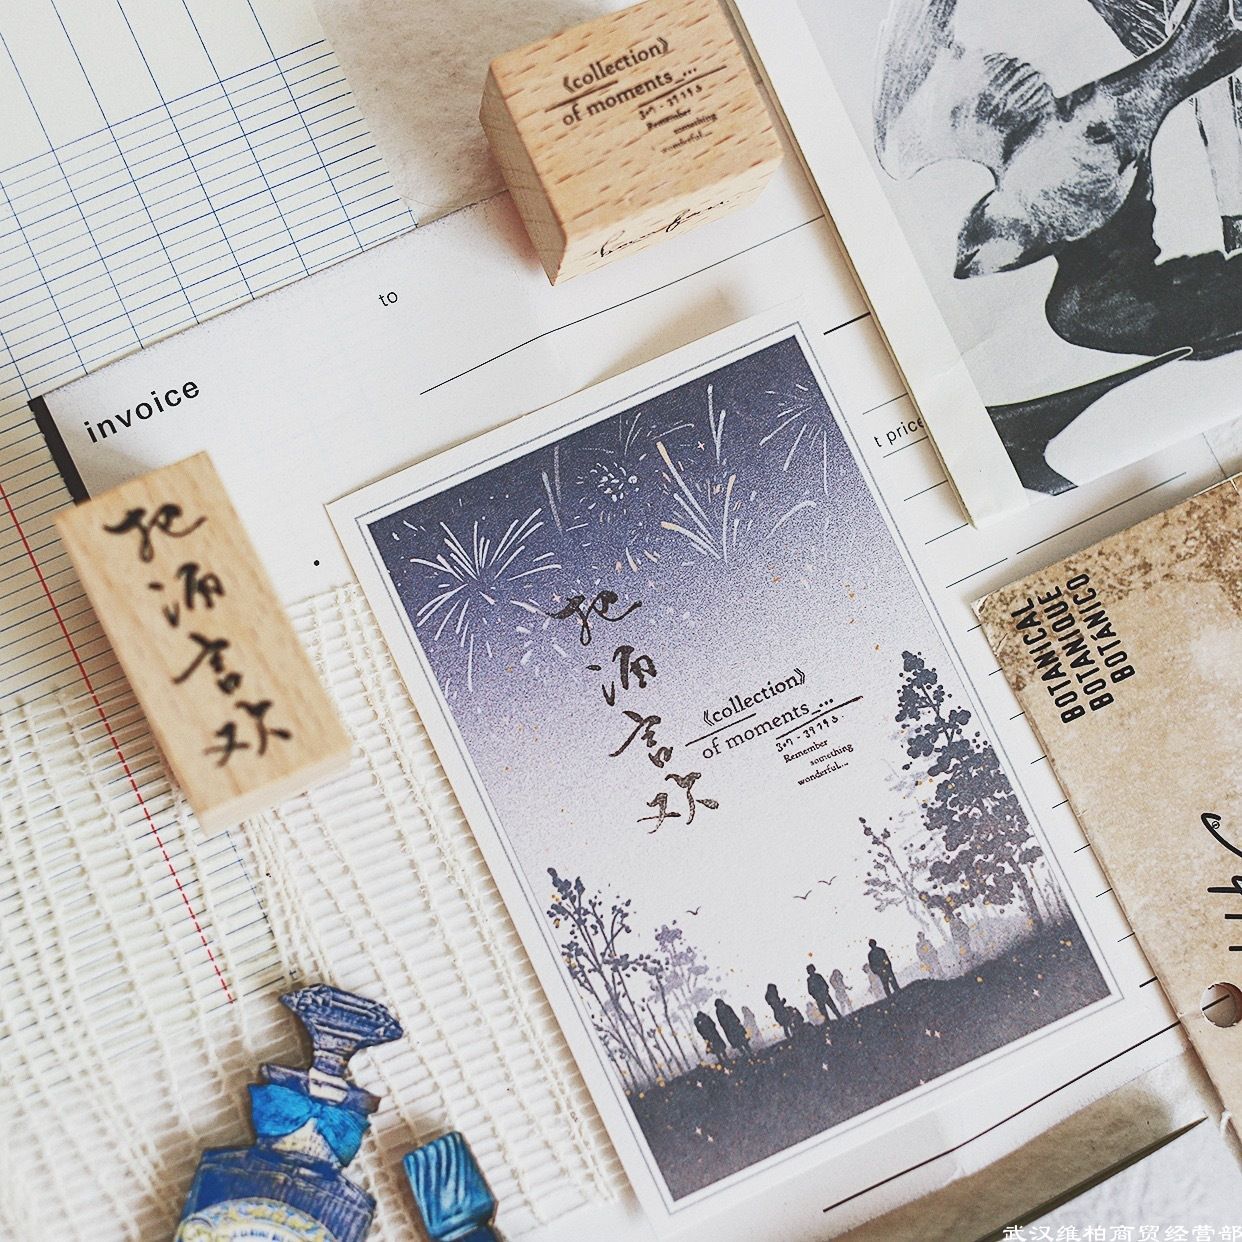 《collection》
of moments_...
Remember
something
wonderful...
to
invoice
t price
把酒言欢
把酒言欢
《collection》
of moments_...
Remember
something
wonderful...
BOTANICAL
BOTANIQUE
BOTÁNICO
武汉维柏商贸经营部